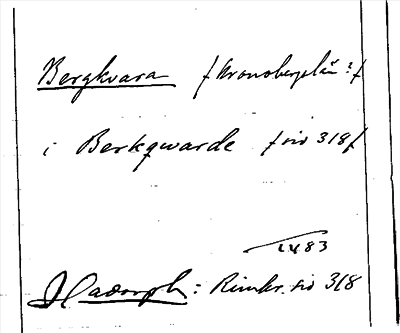 Bergkvara /Kronobergslän?/
i Berkqwarde /sid 318/
1483
Hadorph: Rimkr. sid 318